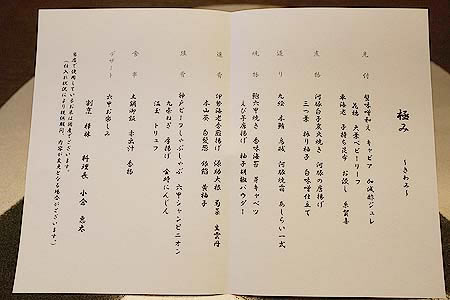 極み 〜きわみ〜
先付
蟹味噌和え キャビア 加減酢ジュレ
花穂 大葉ベビーリーフ
車海老 子持ち昆布 お浸し 糸賀喜
煮物
河豚白子炭火焼き 河豚の唐揚げ
三つ葉 振り柚子 白味噌仕立て
造り
九絵 本鮪 烏賊 河豚焼霜 あしらい一式
焼物
鮑六甲焼き 香味海苔 芽キャベツ
えび芋唐揚げ 柚子胡椒パウダー
進肴
伊勢海老香煎揚げ 保助大根 菊菜 生雲丹
木山葵 白髪葱 銀餡 黄柚子
強肴
神戸ビーフしゃぶしゃぶ 六甲シャンピニオン
九条ねぎ 唐揚げ 金時にんじん
温玉 トリュフ
食事
土鍋御飯 赤出汁 香物
デザート
六甲お楽しみ
割烹 料理長 小倉
当店で使用しているお米は国産でございます。
(仕入れ状況により提供期間、内容が変更となる場合がございます。)